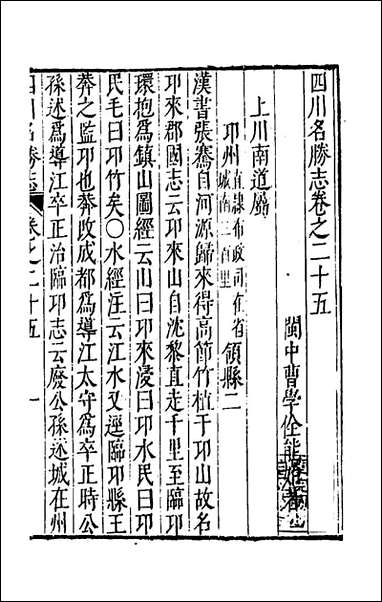 四川名勝志卷之二十五
閩中曹學佺能始著
上川南道屬
邛州直隸布政司在省城南三百里領縣二
漢書張騫自河源歸來得高節竹植于邛山故名
邛來郡國志云邛來山自沈黎直走千里至臨邛
環抱爲鎮山圖經云山曰邛來溇曰邛水民曰邛
民毛曰邛竹矣〇水經注云江水又逕臨邛縣王
莽之監邛也莽改成都爲導江太守爲卒正時公
孫述爲導江卒正治臨邛志云廢公孫述城在州
四川名勝志
卷之二十五
一